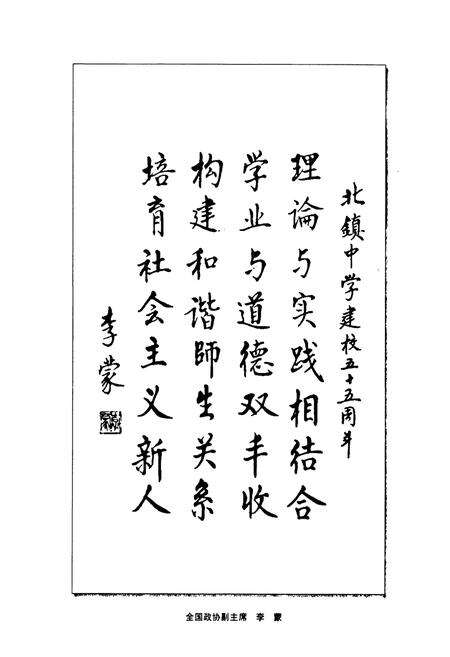 北鎮中学建校五十五周年
理论与实践相结合
学业与道德双丰收
构建和谐師生关系
培育社会主义新人
李蒙
全国政协副主席 李 蒙